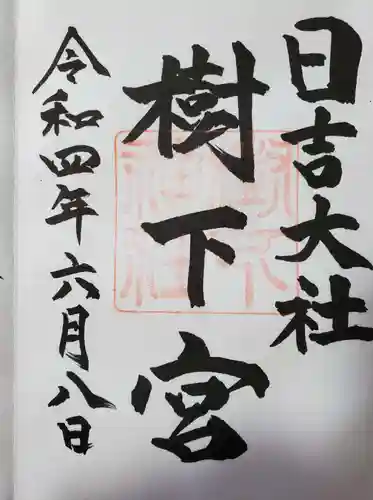 日吉大社
樹下宮
令和四年六月八日